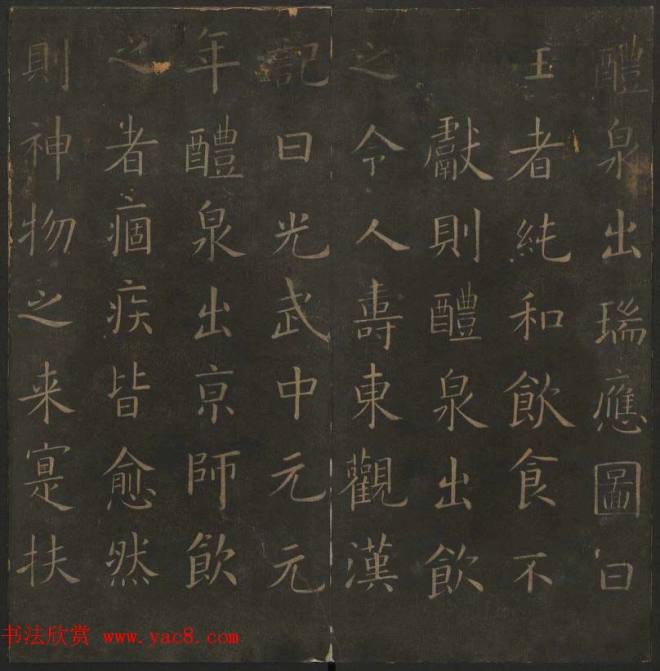 醴泉出瑞應圖曰
王者純和飲食不
獻則醴泉出飲
之令人壽東觀漢
記曰光武中元元
年醴泉出京師飲
之者痼疾皆愈然
則神物之来寔扶
书法欣赏 www.yac8.com